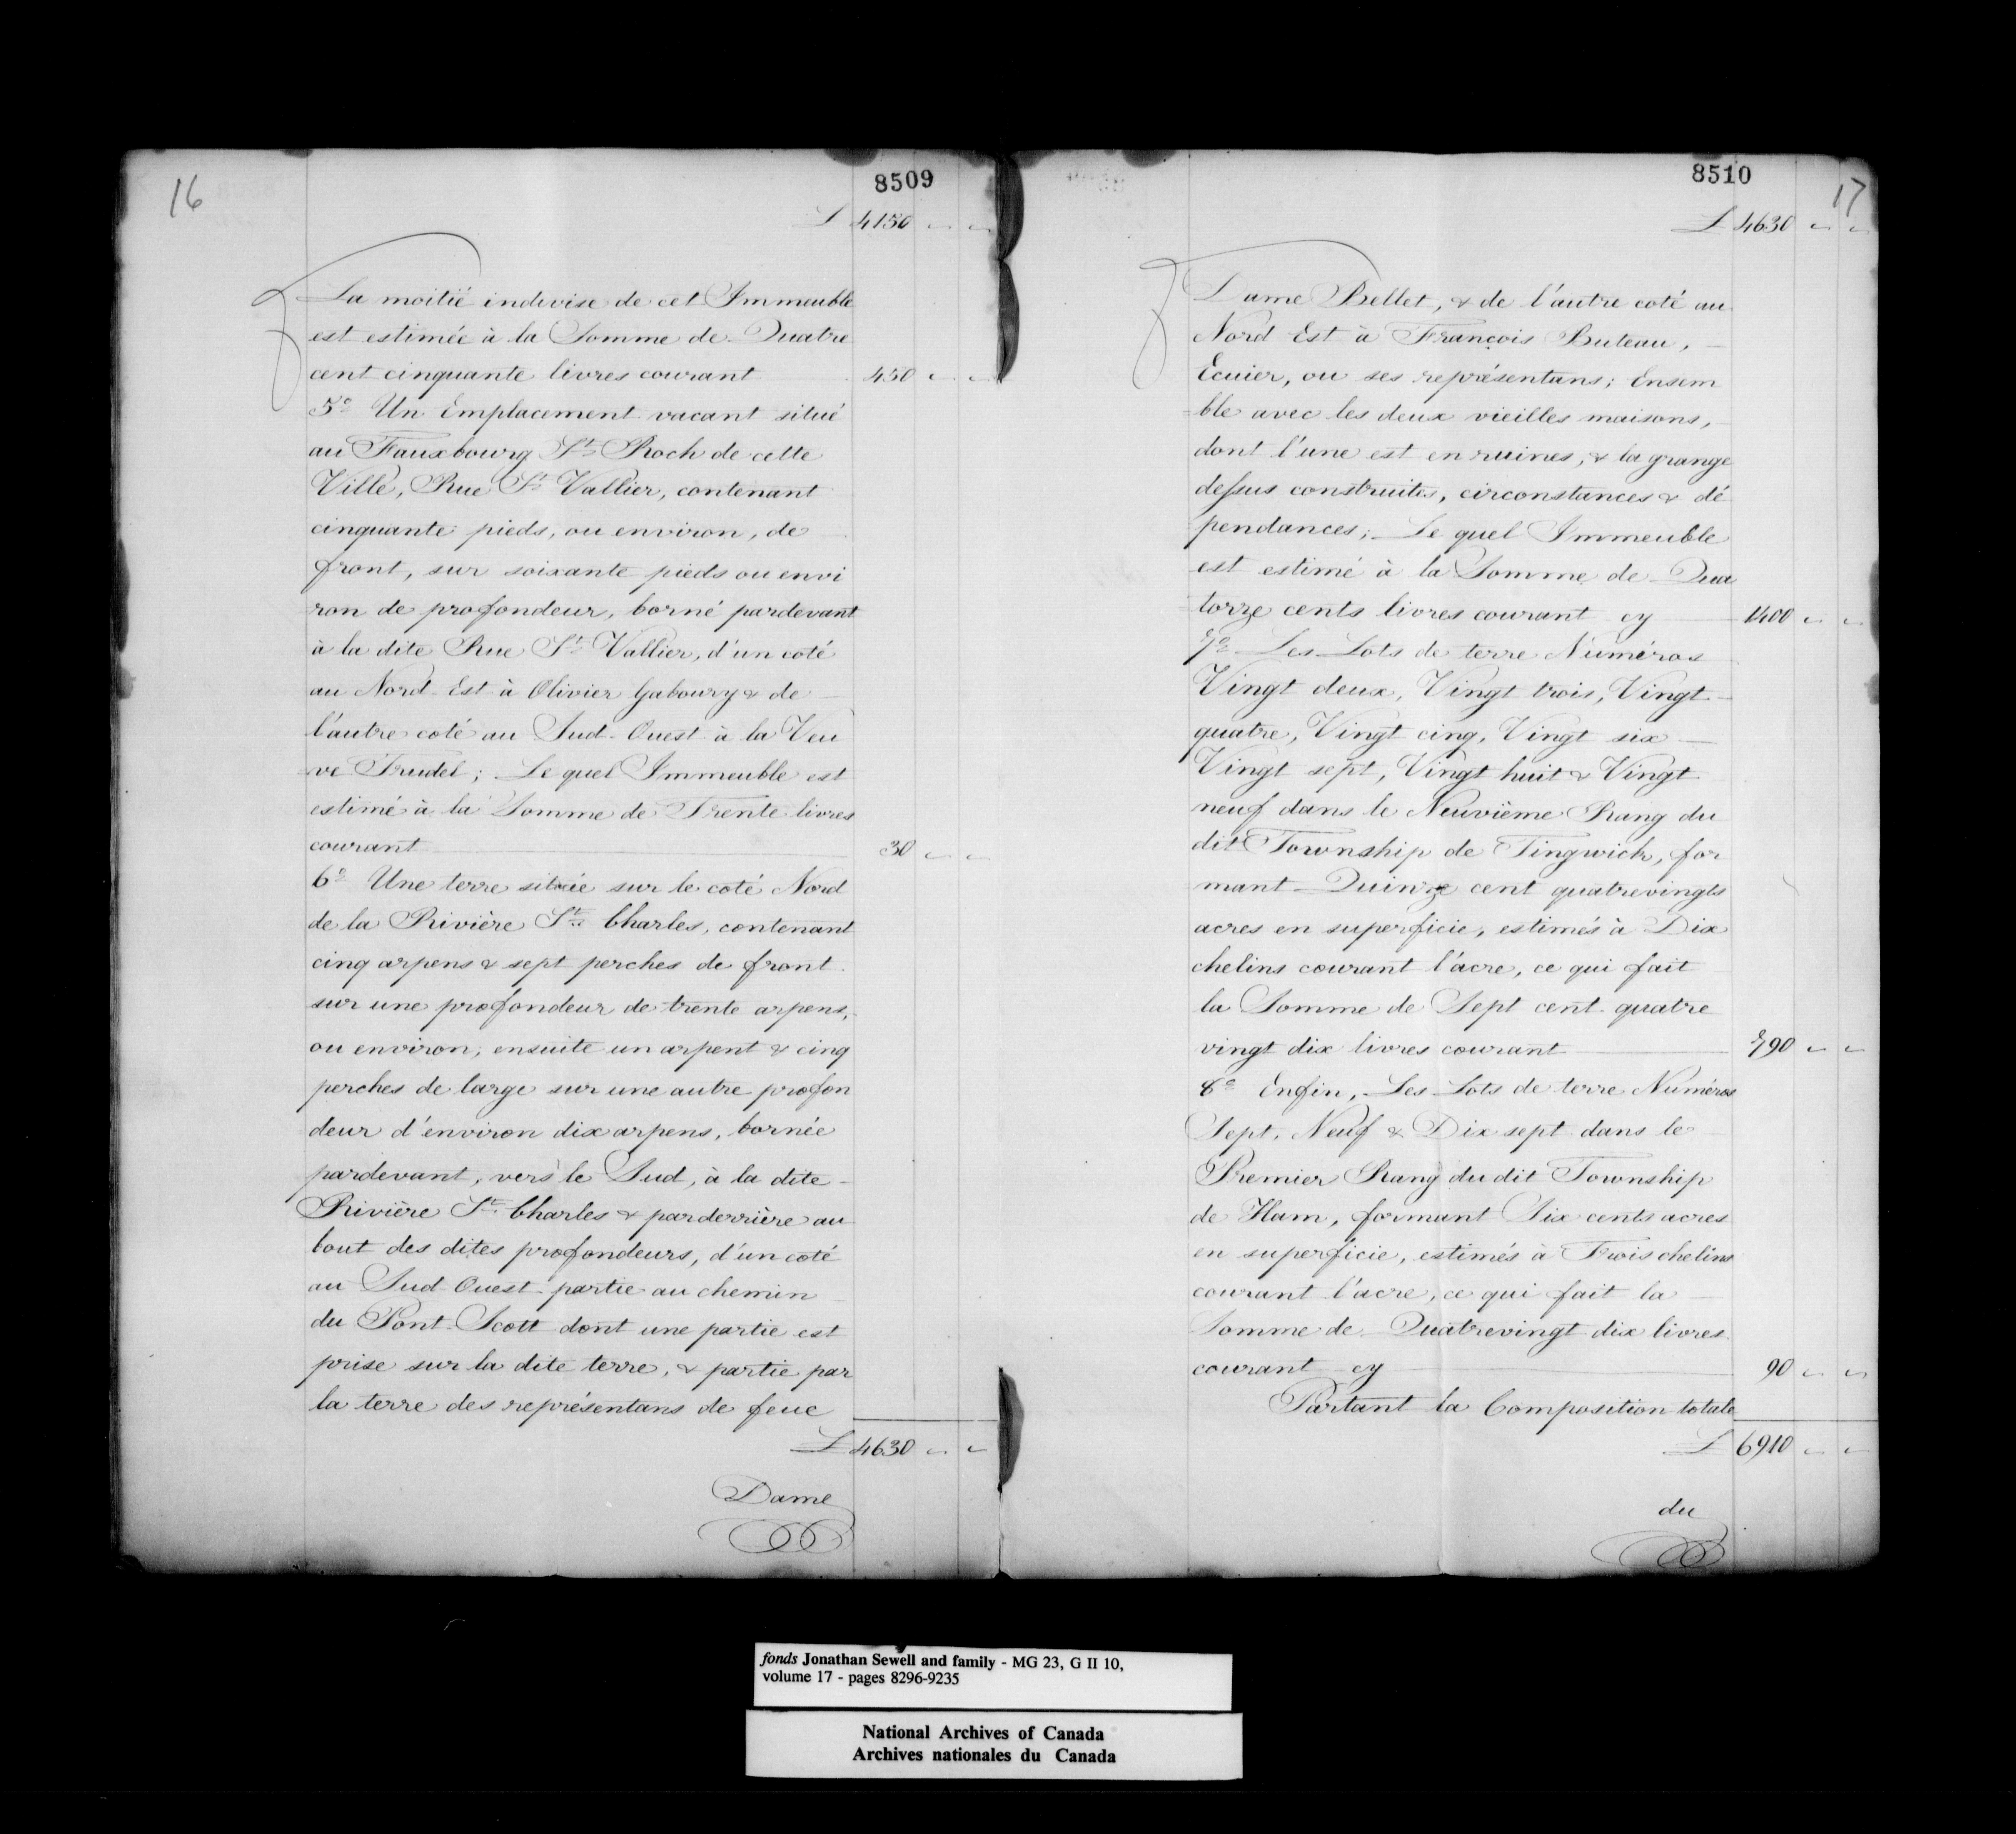 16
8509
£ 4150 " "
La moitié indivise de cet Immeuble
est estimée à la Somme de Quatre
cent cinquante livres courant 450 " "
5º Un Emplacement vacant situé
au Fauxbourg St Roch de cette
Ville, Rue St Vallier, contenant
cinquante pieds, ou environ, de
front, sur soixante pieds ou envi
ron de profondeur, borné pardevant
à la dite Rue St Vallier, d'un coté
au Nord-Est à Olivier Gaboury & de
l'autre coté au Sud-Ouest à la Veu
ve Trudel; Le quel Immeuble est
estimé à la Somme de Trente livres
courant 30 " "
6º Une terre située sur le coté Nord
de la Rivière St Charles, contenant
cinq arpens & sept perches de front
sur une profondeur de trente arpens,
ou environ, ensuite un arpent & cinq
perches de large sur une autre profon
deur d'environ dix arpens, bornée
pardevant, vers le Sud, à la dite
Rivière St Charles & parderrière au
bout des dites profondeurs, d'un coté
au Sud-Ouest partie au chemin
du Pont-Scott dont une partie est
prise sur la dite terre, & partie par
la terre des représentans de feue
£ 4630 " "
Dame
8510
17
£ 4630 " "
Dame Bellet, & de l'autre coté au
Nord Est à François Buteau,
Ecuier, ou ses représentans; Ensem
=ble avec les deux vieilles maisons,
dont l'une est en ruines, & la grange
dessus construites, circonstances & dé
pendances; Le quel Immeuble
est estimé à la Somme de Qua
=torze cents livres courant cy 1400 " "
7º Les Lots de terre Numéros
Vingt deux, Vingt trois, Vingt
quatre, Vingt cinq, Vingt six
Vingt sept, Vingt huit & Vingt
neuf dans le Neuvième Rang du
dit Township de Tingwick, for
mant Quinze cent quatrevingts
acres en superficie, estimés à Dix
chelins courant l'acre, ce qui fait
la Somme de Sept cent quatre
vingt dix livres courant 790 " "
8º Enfin, Les Lots de terre Numéros
Sept, Neuf & Dix sept dans le
Premier Rang du dit Township
de Ham, formant Six cents acres
en superficie, estimés à Trois chelins
courant l'acre, ce qui fait la
Somme de Quatrevingt dix livres
courant cy 90 " "
Partant la Composition totale
£ 6910 " "
du
fonds Jonathan Sewell and family - MG 23, G II 10,
volume 17 - pages 8296-9235
National Archives of Canada
Archives nationales du Canada